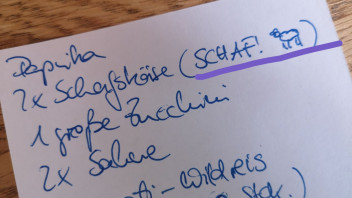 Paprika
2x Schafskäse (SCHAF!)
1 große Zucchini
2x Sahne
- Wildreis
Stck.)